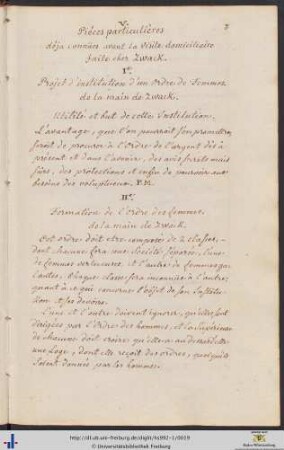 Pièces particulières
déja connües avant la Visite domiciliaire
faite chez Zwack.
I°.
Projet d'institution d'un Ordre de Femmes
de la main de Zwack.
Utilité et but de cette Institution.
L'avantage, que l'on pourroit s'en promettre,
seroit de procurer à l'Ordre de l'argent dès à
présent et dans l'avenir, des avis secrets mais
sûrs, des protections et enfin de pourvoir aux
besoins des voluptueux. P.M.
II°.
Formation de l'Ordre des femmes.
de la main de Zwack.
Cet ordre doit etre composé de 2 classes,
dont chacune fera une Société separée, l'une
de femmes vertueuses et l'autre de femmes ga-
lantes. Chaque classe sera inconnüe à l'autre,
quant à ce qui concerne l'objet de son Institu-
tion et ses devoirs.
L'une et l'autre doivent ignorer, qu'elles sont
dirigées par l'Ordre des hommes, et la Supérieure
de chacune doit croire qu'elle a au dessus d'elle
une Loge, dont elle reçoit des ordres, quoiqu'ils
soient donnés par les hommes.
http://dl.ub.uni-freiburg.de/diglit/hs992-1/0019
© Universitätsbibliothek Freiburg
Baden-Württemberg